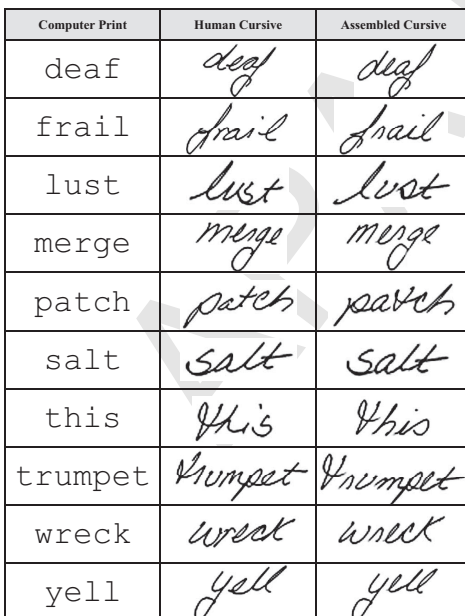 Computer Print Human Cursive Assembled Cursive
deaf deaf deaf
frail frail frail
lust lust lust
merge merge merge
patch patch patch
salt salt salt
this this this
trumpet trumpet trumpet
wreck wreck wreck
yell yell yell